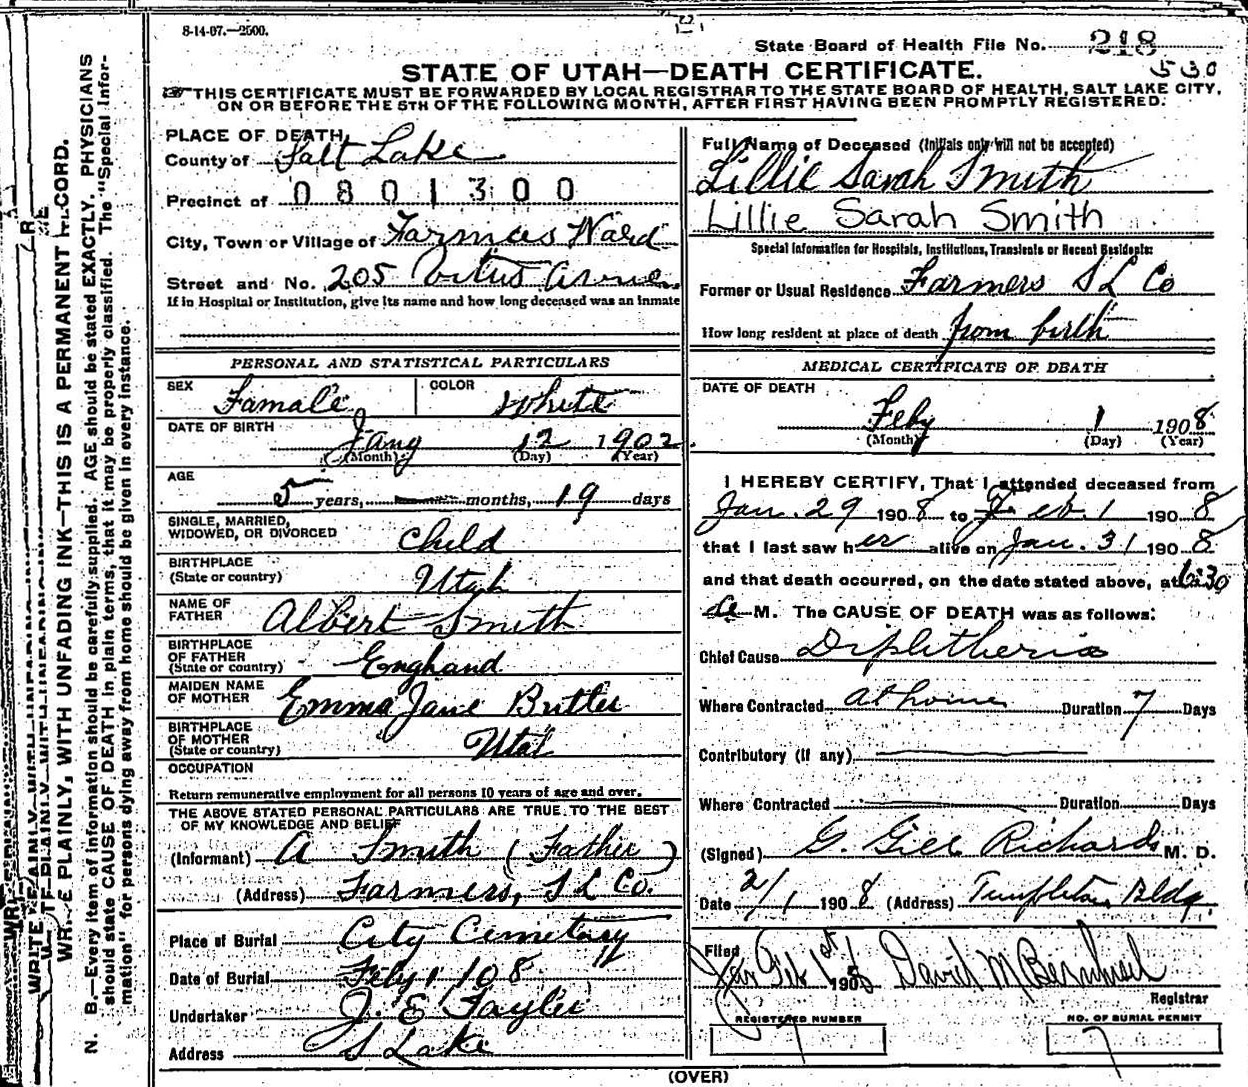 8-14-07.—2500.
State Board of Health File No. 218
530
STATE OF UTAH—DEATH CERTIFICATE.
THIS CERTIFICATE MUST BE FORWARDED BY LOCAL REGISTRAR TO THE STATE BOARD OF HEALTH, SALT LAKE CITY,
ON OR BEFORE THE 5TH OF THE FOLLOWING MONTH, AFTER FIRST HAVING BEEN PROMPTLY REGISTERED.
PLACE OF DEATH,
County of Salt Lake
Precinct of 0801300
City, Town or Village of Farmers Ward
Street and No. 205
If in Hospital or Institution, give its name and how long deceased was an inmate
PERSONAL AND STATISTICAL PARTICULARS
SEX Famale COLOR White
DATE OF BIRTH Jany 12 1902
(Month) (Day) (Year)
AGE 5 years, months, 19 days
SINGLE, MARRIED,
WIDOWED, OR DIVORCED Child
BIRTHPLACE
(State or country) Utah
NAME OF
FATHER Albert Smith
BIRTHPLACE
OF FATHER
(State or country) Enghand
MAIDEN NAME
OF MOTHER Emma Jane Butler
BIRTHPLACE
OF MOTHER
(State or country) Utah
OCCUPATION
Return remunerative employment for all persons 10 years of age and over.
THE ABOVE STATED PERSONAL PARTICULARS ARE TRUE TO THE BEST
OF MY KNOWLEDGE AND BELIEF
(Informant) A Smith (Father)
(Address) Farmers, S L Co.
Place of Burial City Cemetary
Date of Burial Feby 1 108
Undertaker J. E Taylor
Address S Lake
Full Name of Deceased (Initials only will not be accepted)
Lillie Sarah Smith
Lillie Sarah Smith
Special Information for Hospitals, Institutions, Transients or Recent Residents:
Former or Usual Residence Farmers S L Co
How long resident at place of death from birth
MEDICAL CERTIFICATE OF DEATH
DATE OF DEATH
Feby 1 1908
(Month) (Day) (Year)
I HEREBY CERTIFY, That I attended deceased from
Jan. 29 1908 to Feb. 1 1908
that I last saw her alive on Jan. 31 1908
and that death occurred, on the date stated above, at 6:30
a M. The CAUSE OF DEATH was as follows:
Chief Cause Diphtheria
Where Contracted at home Duration 7 Days
Contributory (if any)
Where Contracted Duration Days
(Signed) G. Gill Richards M. D.
Date 2/1 1908 (Address) Templeton Bldg.
Filed Feb 1st 1908 David M
Registrar
REGISTERED NUMBER 7
NO. OF BURIAL PERMIT 7
(OVER)
WRITE PLAINLY, WITH UNFADING INK—THIS IS A PERMANENT RECORD.
N. B.—Every item of information should be carefully supplied. AGE should be stated EXACTLY. PHYSICIANS
should state CAUSE OF DEATH in plain terms, that it may be properly classified. The "Special Infor-
mation" for persons dying away from home should be given in every instance.